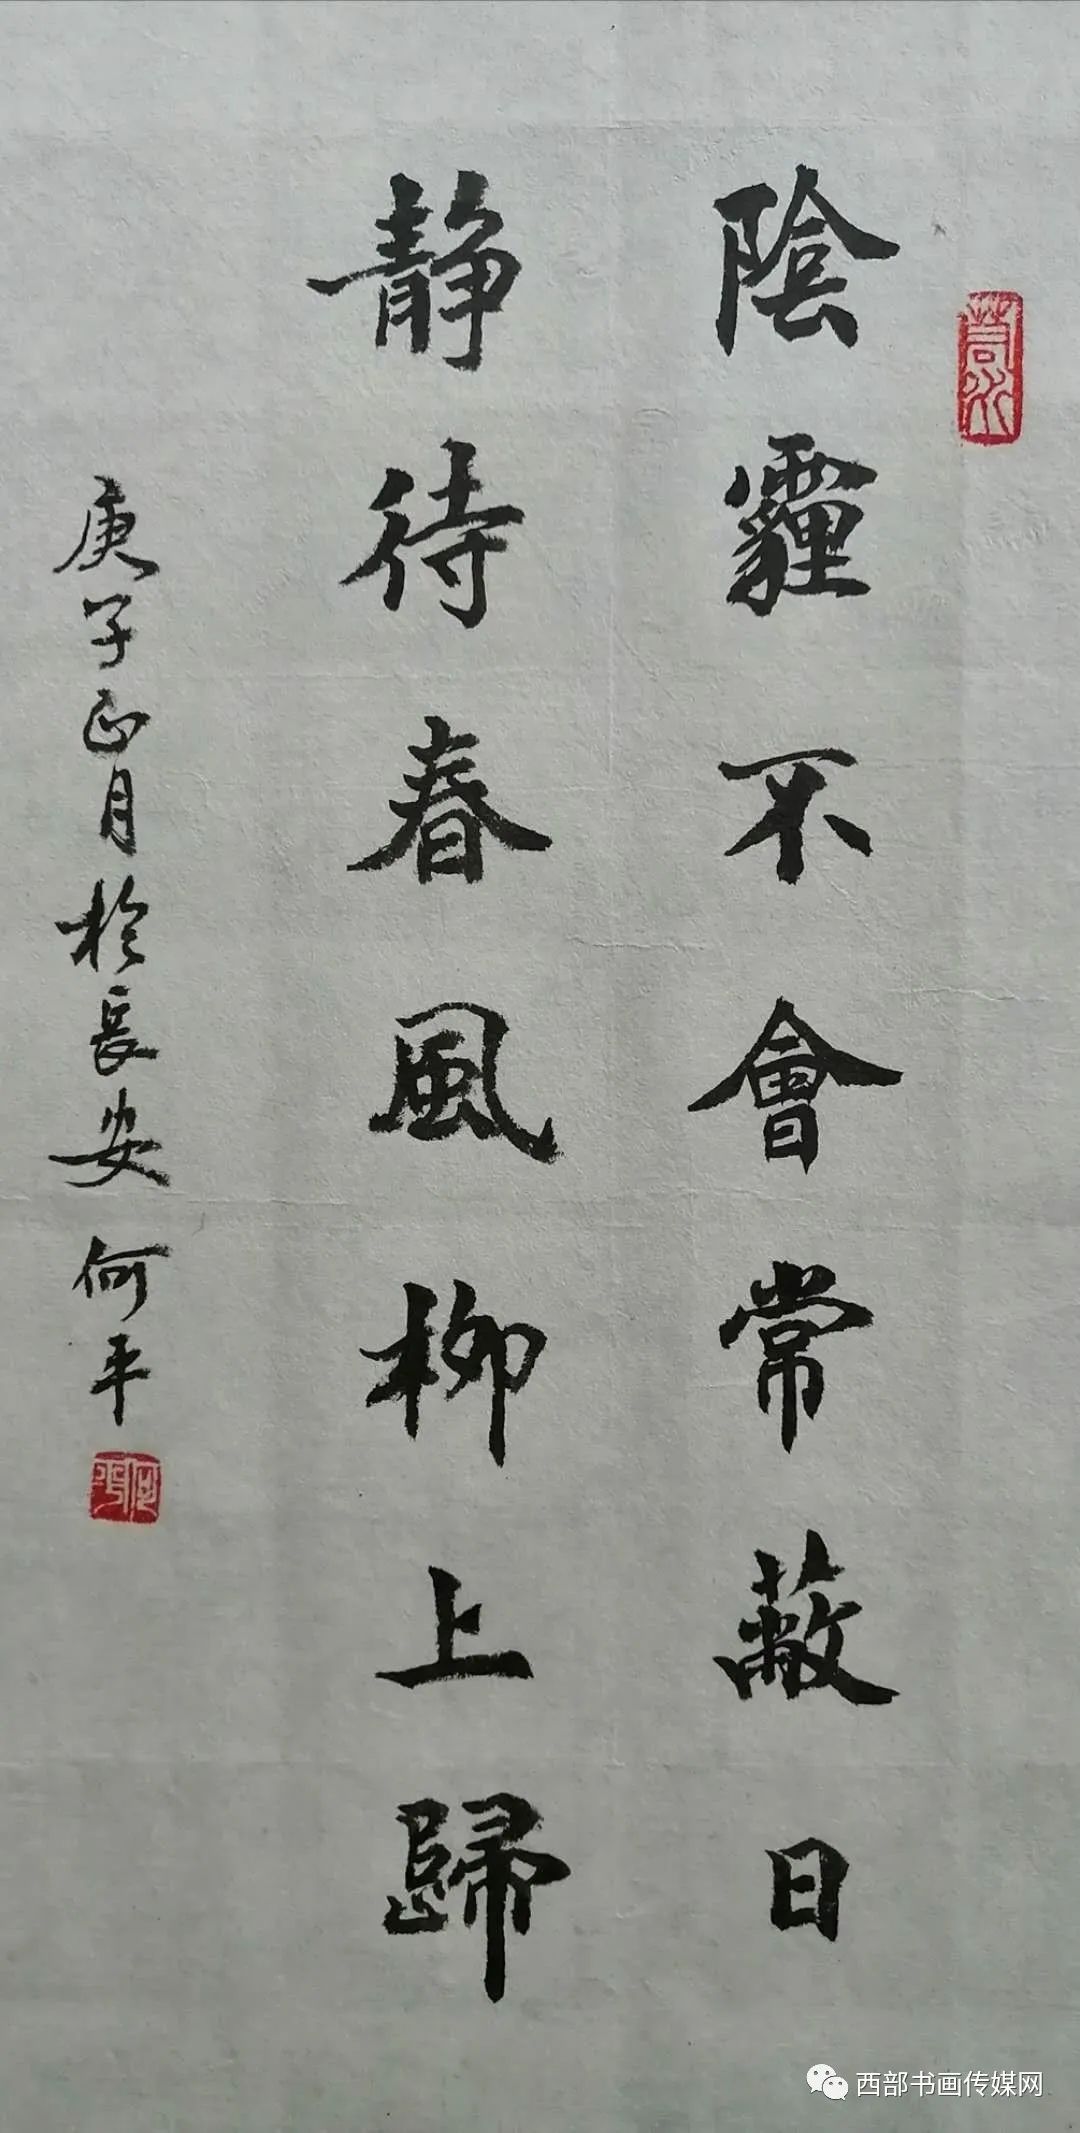 陰霾不會常蔽日
靜待春風柳上歸
庚子正月於長安 何平
西部书画传媒网